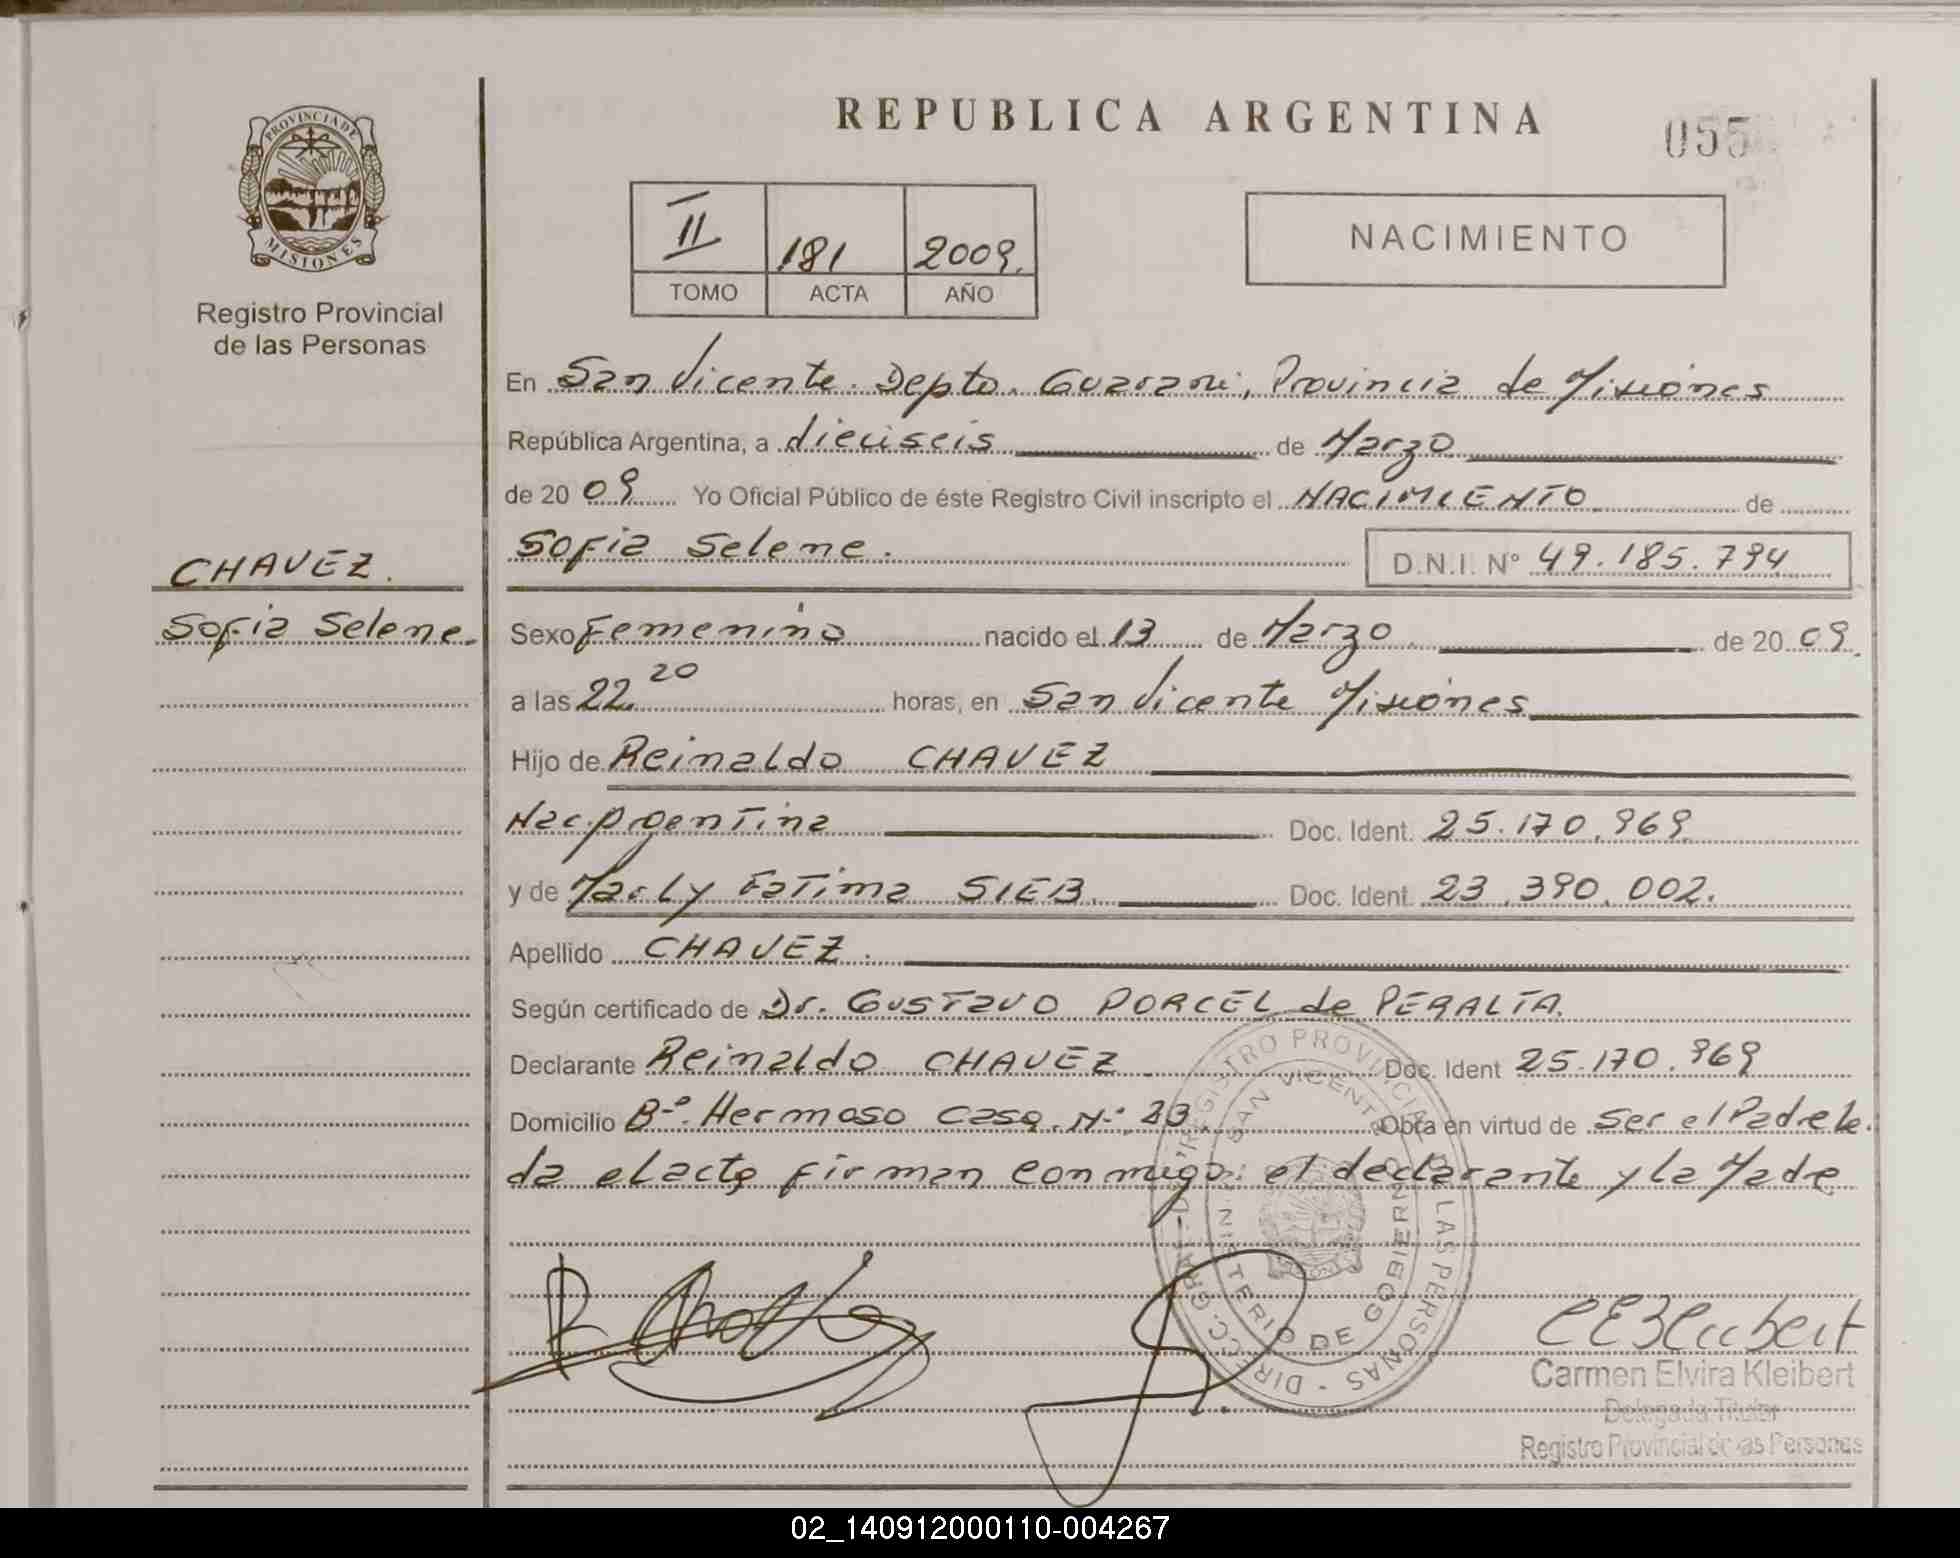 REPUBLICA ARGENTINA
055
PROVINCIA DE
MISIONES
Registro Provincial
de las Personas
II 181 2009.
TOMO ACTA AÑO
NACIMIENTO
En San Vicente. Depto. Guarani, Provincia de Misiones
República Argentina, a dieciseis de Marzo
de 2009 Yo Oficial Público de éste Registro Civil inscripto el NACIMIENTO de
Sofia Selene. D.N.I. N° 49.185.794
CHAVEZ.
Sofia Selene.
Sexo Femenino nacido el 13 de Marzo de 2009.
a las 22.20 horas, en San Vicente Misiones
Hijo de Reinaldo CHAVEZ
Nac. Argentina Doc. Ident. 25.170.969
y de Marly Fatima SIEB. Doc. Ident. 23.390.002.
Apellido CHAVEZ.
Según certificado de Dr. Gustavo PORCEL de PERALTA.
Declarante Reinaldo CHAVEZ Doc. Ident 25.170.969
Domicilio B-º. Hermoso Casa. Nº. 23 Obra en virtud de ser el Padre le.
da el acta firman conmigo: el declarante y la Madre
DIRECC. GRAL. DEL REGISTRO PROVINCIAL DE LAS PERSONAS
SAN VICENTE
MINISTERIO DE GOBIERNO
Carmen Elvira Kleibert
Delegada Titular
Registro Provincial de las Personas
02_140912000110-004267